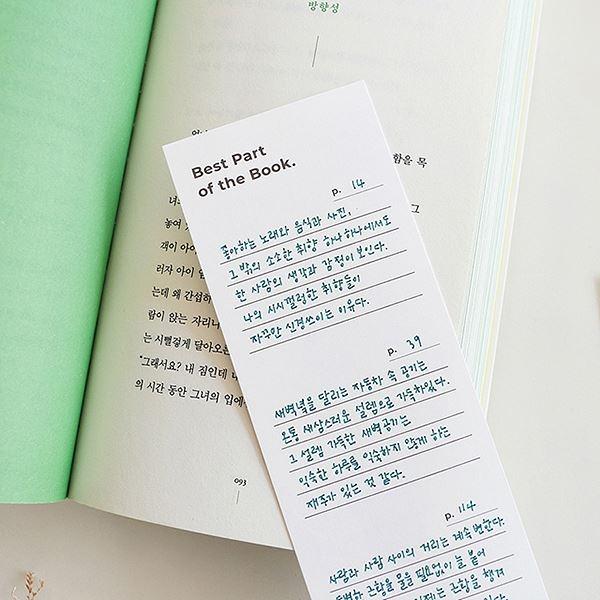 방향성
함을 목
그
너의
놓여
객이 아이
러자 아이
는데 왜 간섭하
람이 앉는 자리니
는 시뻘겋게 달아오른
"그래서요? 내 짐인데 
의 시간 동안 그녀의 입에
093
Best Part
of the Book.
p. 14
좋아하는 노래와 음식과 사진,
그 밖의 소소한 취향 하나하나에서도
한 사람의 생각과 감정이 보인다.
나의 시시껄렁한 취향들이
자꾸만 신경쓰이는 이유다.
p. 39
새벽녘을 달리는 자동차 속 공기는
온통 세삼스러운 설렘으로 가득차있다.
그 설렘 가득한 새벽공기는
익숙한 하루를 익숙하지 않게 하는
재주가 있는 것 같다.
p. 114
사람과 사람 사이의 거리는 계속 변한다.
근황을 물을 필요없이 늘 붙어
근황을 챙겨